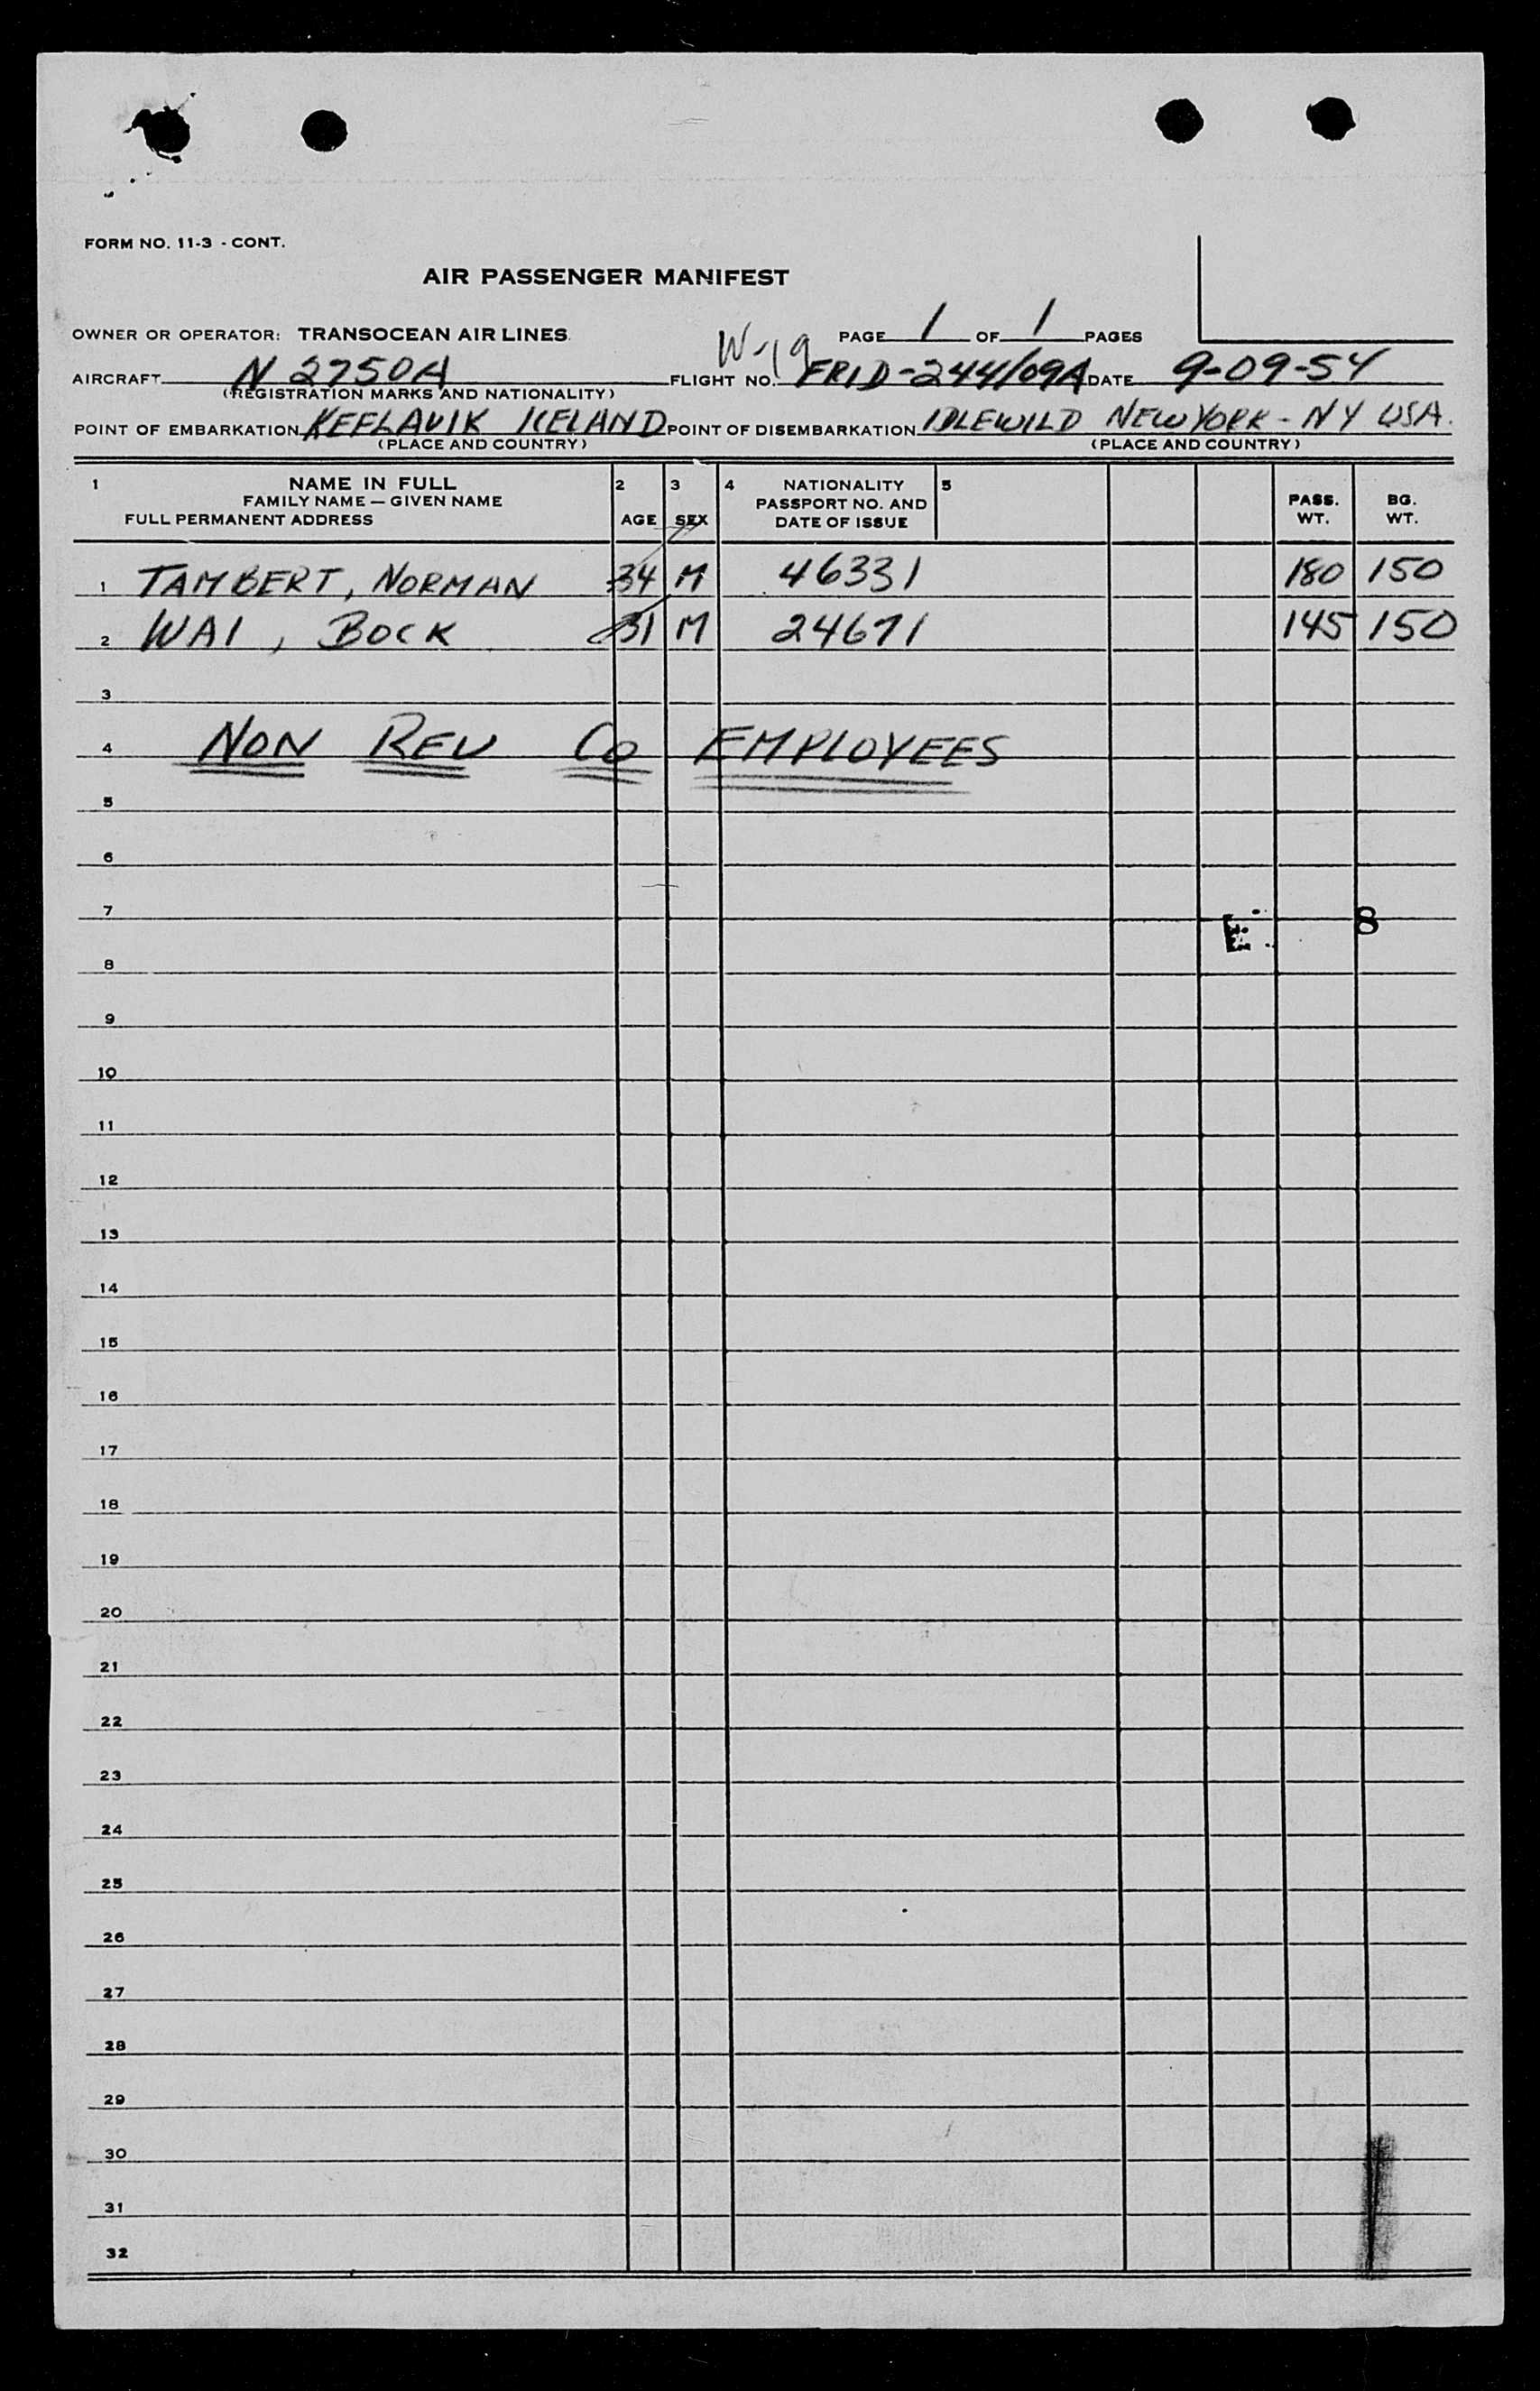 FORM NO. 11-3 - CONT.
AIR PASSENGER MANIFEST
OWNER OR OPERATOR: TRANSOCEAN AIR LINES. W-19 PAGE 1 OF 1 PAGES
AIRCRAFT N 2750A FLIGHT NO. FRID-244/09A DATE 9-09-54
(REGISTRATION MARKS AND NATIONALITY)
POINT OF EMBARKATION KEFLAVIK ICELAND POINT OF DISEMBARKATION IDLEWILD NEW YORK - NY USA.
(PLACE AND COUNTRY) (PLACE AND COUNTRY)
1 NAME IN FULL 2 3 4 NATIONALITY 5
FAMILY NAME — GIVEN NAME PASSPORT NO. AND PASS. BG.
FULL PERMANENT ADDRESS AGE SEX DATE OF ISSUE WT. WT.
1 TAMBERT, NORMAN 34 M 46331 180 150
2 WAI, BOCK 31 M 24671 145 150
3
4 NON REV CO EMPLOYEES
5
6
7 8
8
9
10
11
12
13
14
15
16
17
18
19
20
21
22
23
24
25
26
27
28
29
30
31
32